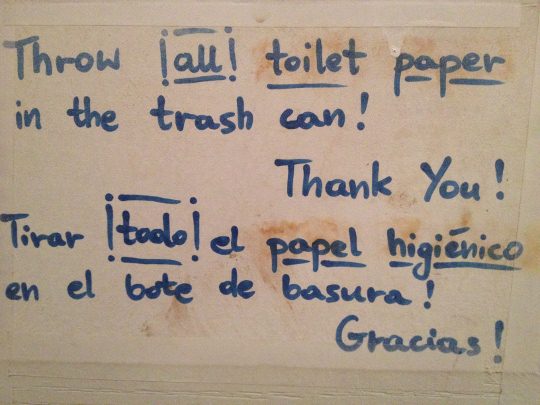 Throw ¡all! toilet paper
in the trash can!
Thank You!
Tirar ¡todo! el papel higiénico
en el bote de basura!
Gracias!